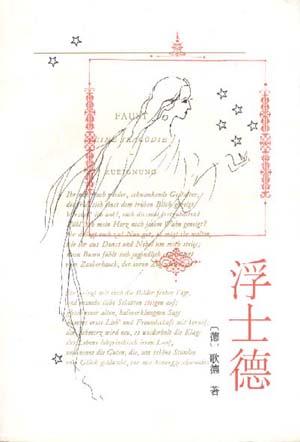 FAUST
EINE TRAGÖDIE
ZUEIGNUNG
Ihr naht euch wieder, schwankende Gestalten,
die früh sich einst dem trüben Blick gezeigt.
ich wohl, euch diesmal
Fühl' ich mein Herz noch jenem Wahn geneigt?
Ihr drängt euch zu! Nun gut, so mögt ihr walten,
wie ihr aus Dunst und Nebel um mich steigt;
mein Busen fühlt sich jugendlich
vom Zauberhauch, der euren Zug
Ihr bringt mit euch die Bilder froher Tage,
und manche liebe Schatten steigen auf;
gleich einer alten, halbverklungnen Sage
kommt erste Lieb' und Freundschaft mit herauf;
der Schmerz wird neu, es wiederholt die Klage
des Lebens labyrinthisch irren Lauf,
und nennt die Guten, die, um schöne Stunden
vom Glück getäuscht, vor mir hinweggeschwunden.
浮士德
〔德〕歌德 著